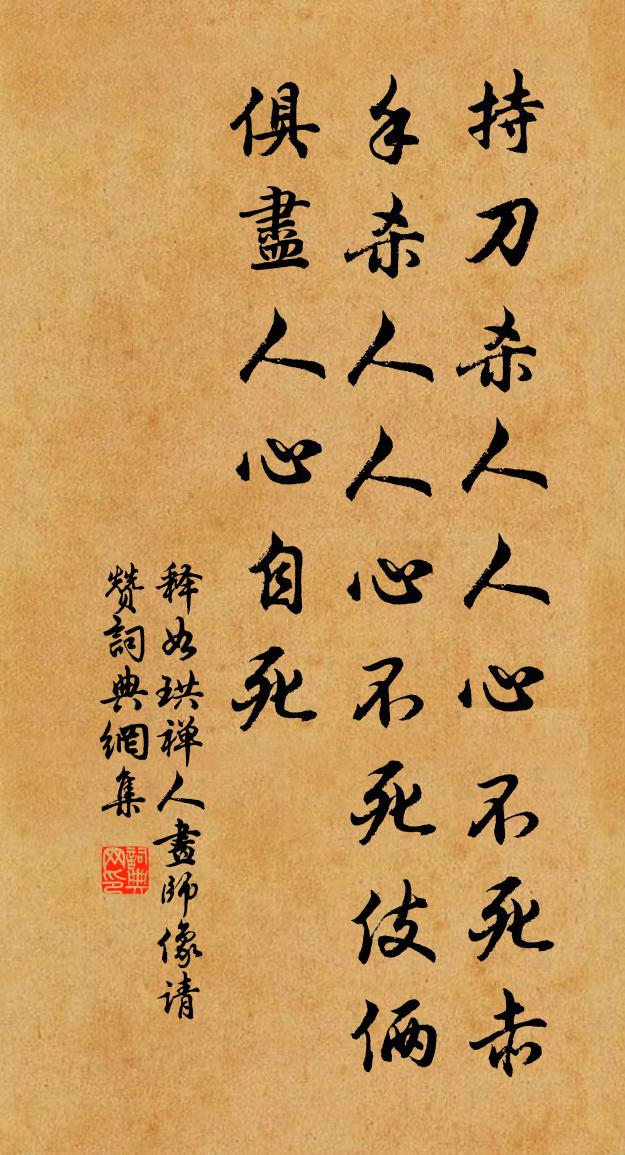 持刀杀人人心不死赤
手杀人人心不死伎俩
俱盡人心自死
释如珙禅人畫师像请
赞詞典網集
詞典网印